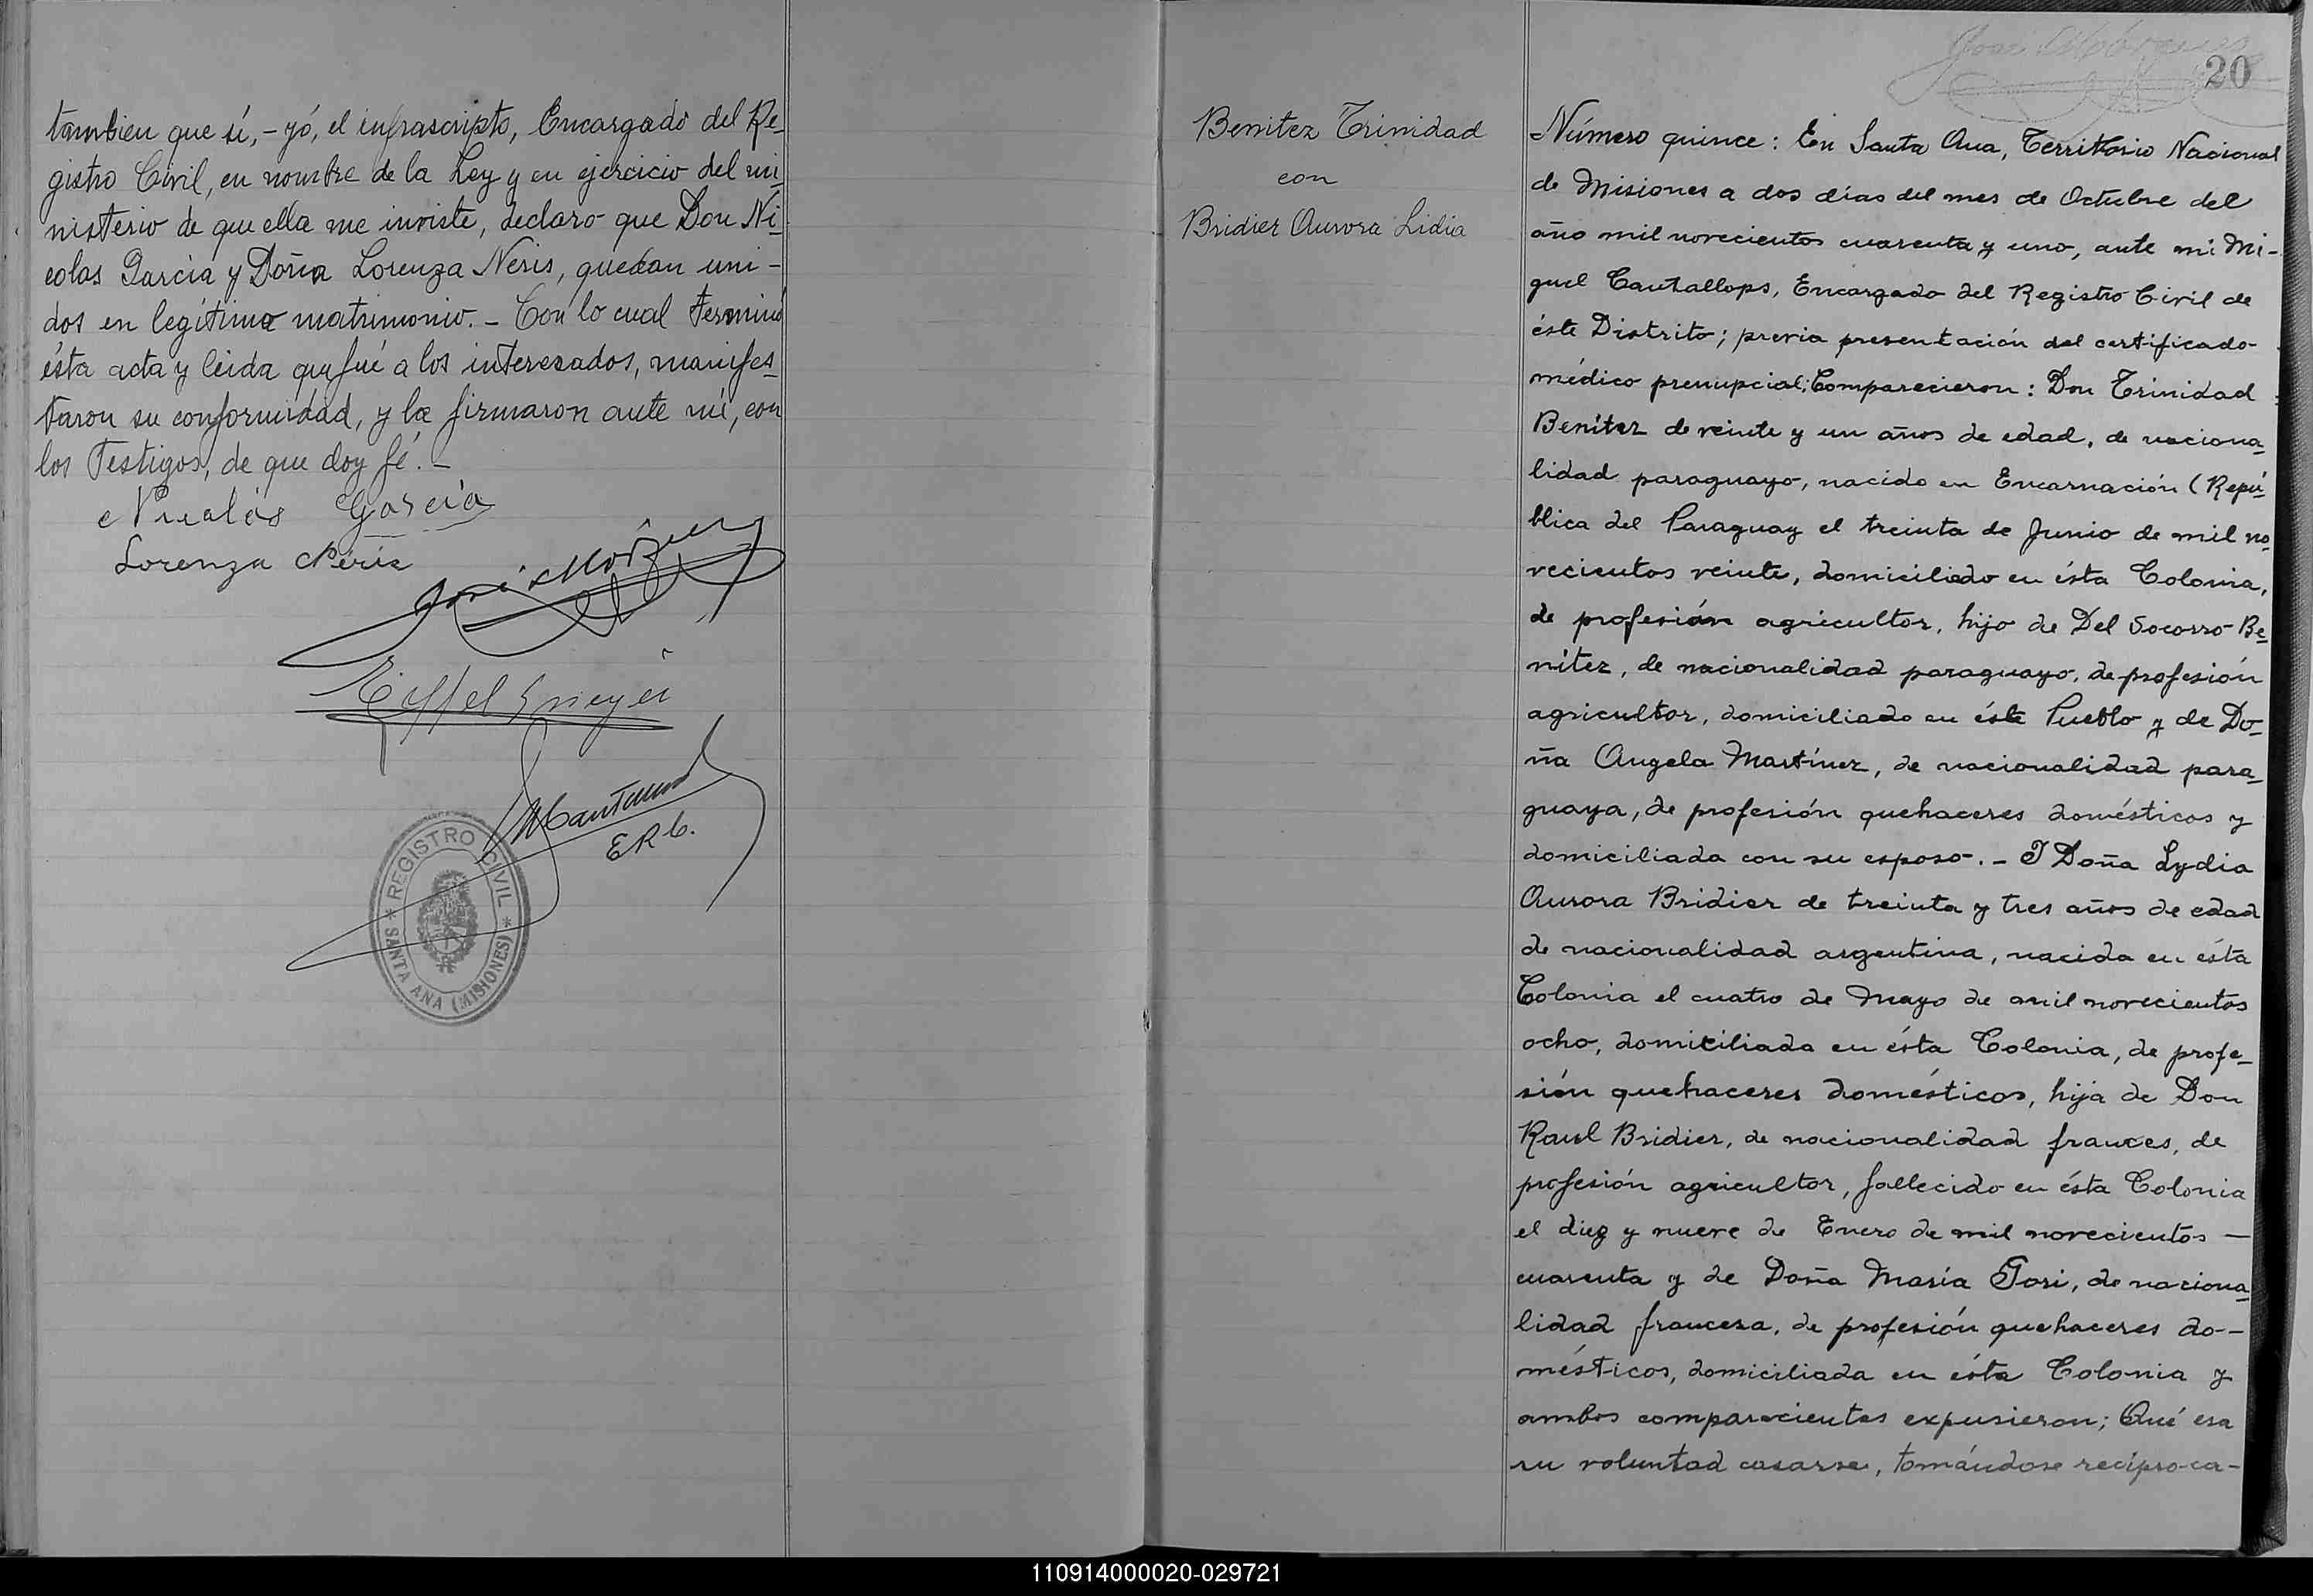 tambien que sí, - yó, el infrascripto, Encargado del Re-
gistro Civil, en nombre de la Ley y en ejercicio del mi-
nisterio de que ella me inviste, declaro que Don Ni-
colas Garcia y Doña Lorenza Neris, quedan uni-
dos en legítimo matrimonio. - Con lo cual terminó
ésta acta y leida que fué a los interesados, manifes-
taron su conformidad, y la firmaron ante mí, con
los Testigos, de que doy fé. -
Nicolás García
Lorenza Néris
José
E.R.C.
REGISTRO CIVIL
* SANTA ANA (MISIONES) *
Benitez Trinidad
con
Bridier Aurora Lidia
20
Número quince: En Santa Ana, Territorio Nacional
de Misiones a dos días del mes de Octubre del
año mil novecientos cuarenta y uno, ante mi Mi-
guel Cantallops, Encargado del Registro Civil de
éste Distrito; previa presentación del certificado
médico prenupcial; Comparecieron: Don Trinidad
Benítez de veinte y un años de edad, de naciona-
lidad paraguayo, nacido en Encarnación (Repú-
blica del Paraguay el treinta de Junio de mil no-
vecientos veinte, domiciliado en ésta Colonia,
de profesión agricultor, hijo de Del Socorro Be-
nítez, de nacionalidad paraguayo, de profesión
agricultor, domiciliado en éste Pueblo y de Do-
ña Angela Martínez, de nacionalidad para-
guaya, de profesión quehaceres domésticos y
domiciliada con su esposo. - I Doña Lydia
Aurora Bridier de treinta y tres años de edad
de nacionalidad argentina, nacida en ésta
Colonia el cuatro de Mayo de mil novecientos
ocho, domiciliada en ésta Colonia, de profe-
sión quehaceres domésticos, hija de Don
Raul Bridier, de nacionalidad frances, de
profesión agricultor, fallecido en ésta Colonia
el diez y nueve de Enero de mil novecientos —
cuarenta y de Doña María Gori, de naciona-
lidad francesa, de profesión quehaceres do-
mésticos, domiciliada en ésta Colonia y
ambos comparecientes expusieron; Qué era
su voluntad casarse, tomándose recíproca-
110914000020-029721